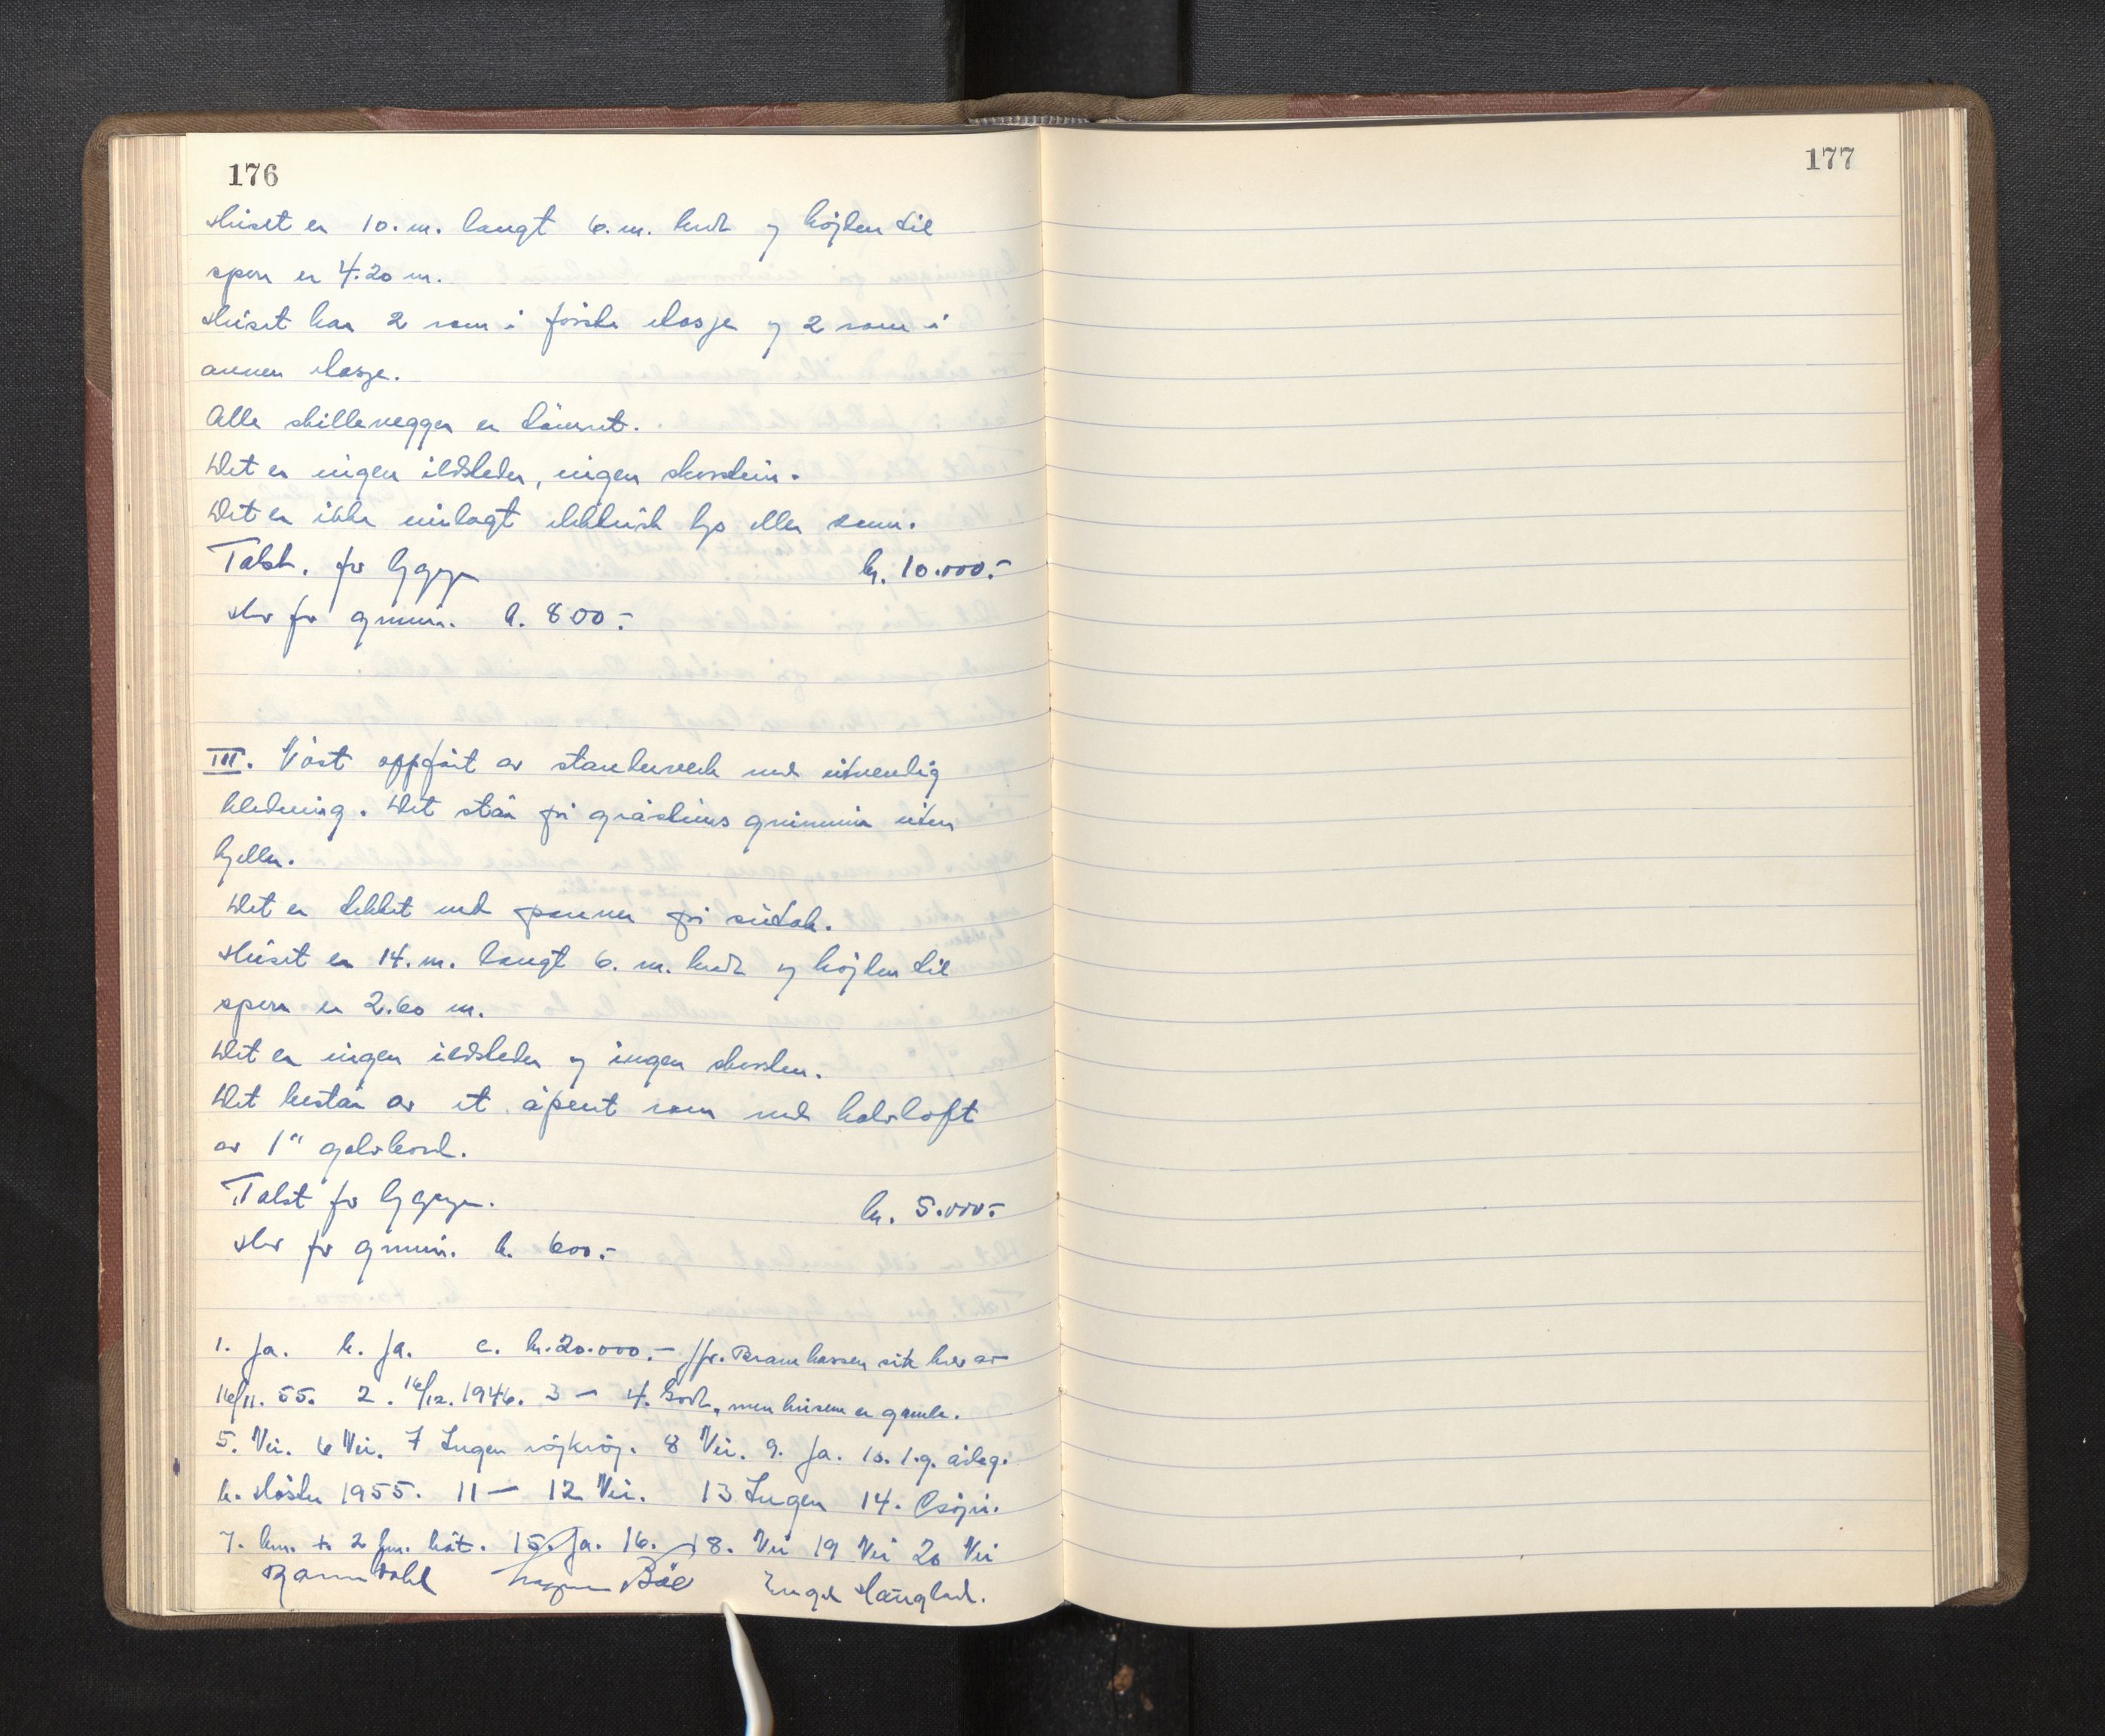 176
Huset er 10.m. langt 6.m. bredt og höjden til
sperr er 4.20 m.
Huset har 2 rom i förste etasje og 2 rom i
annen etasje.
Alle skillevegger er tömret.
Det er ingen ildsteder, ingen skorstein.
Det er ikke innlagt elektrisk lys eller vann.
Takst. for bygygn kr. 10.000.-
Herav for grunnm. kr. 800.-
III. Naust oppfört av stenderverk med utvendig
kledning. Det står på gråsteins grunnmur uten
kjeller.
Det er tekket med panner på sutak.
Huset er 14.m. langt 6. m. bredt og höjden til
sperr er 2.60 m.
Det er ingen ildsteder og ingen skorsten.
Det består av et åpent rom med halvloft
av 1" golvbord.
Takst for bygygn. kr. 5.000.-
Herav for grunnm. kr. 600.-
1. Ja. b. Ja. c. kr. 20.000.- jfr. Brannkassen sitt brev av
16/11. 55. 2. 16/12. 1946. 3 — 4. Godt, men husene er gamle.
5. Nei. 6 Nei. 7 Ingen 8 Nei. 9. Ja. 10. 1.g. årleg.
b. Hösten 1955. 11 — 12 Nei. 13 Ingen 14.
7. km. + 2 km. båt. 15. Ja. 16. 18. Nei 19 Nei 20 Nei
177